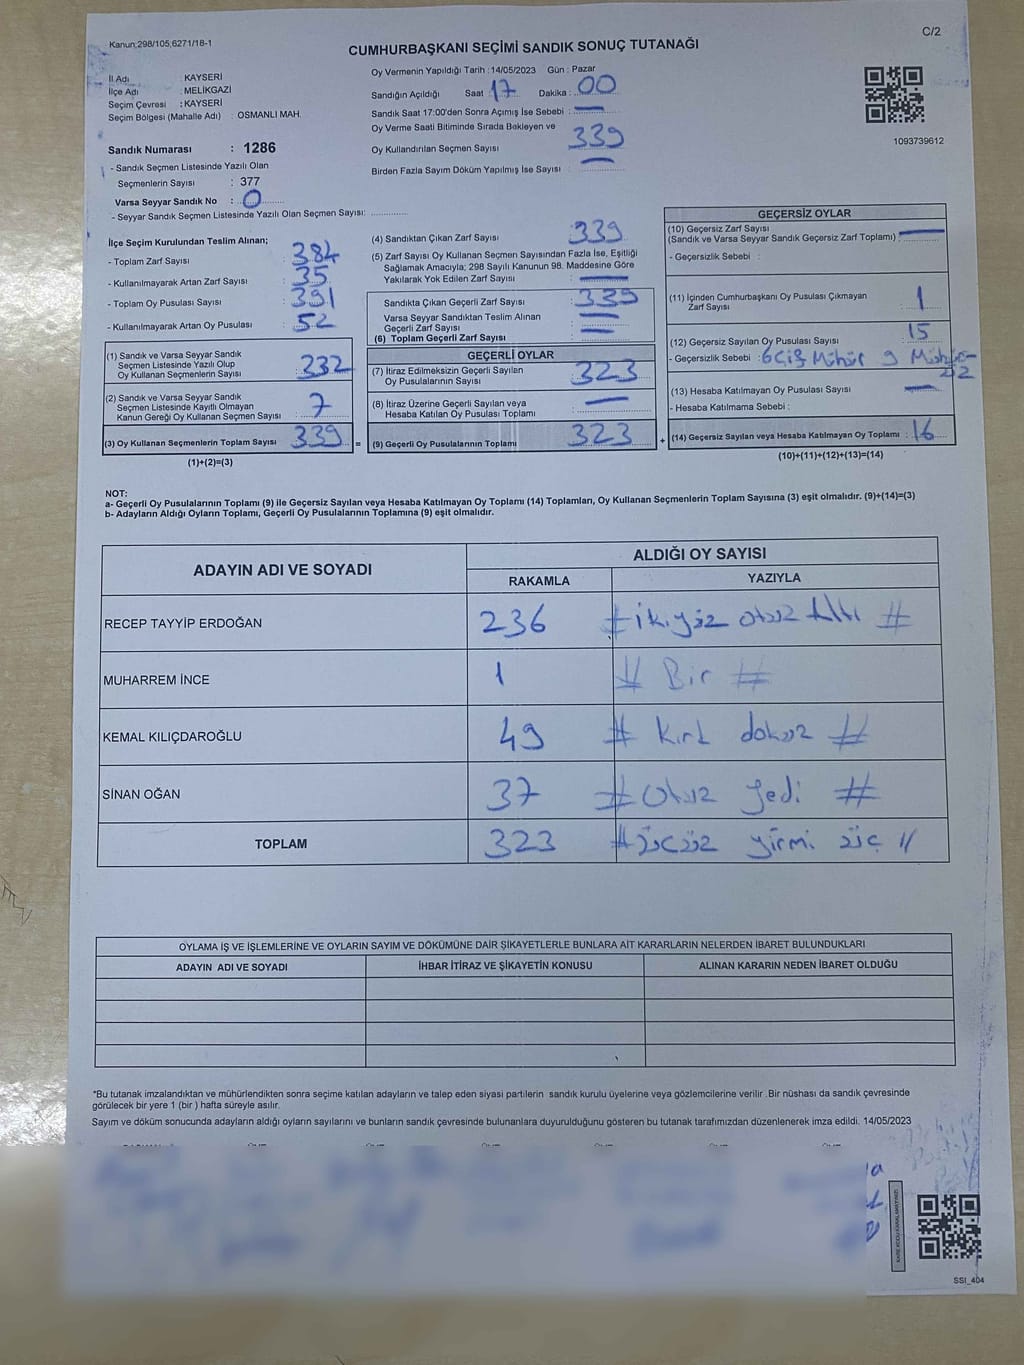 Kanun;298/105,6271/18-1
C/2
CUMHURBAŞKANI SEÇİMİ SANDIK SONUÇ TUTANAĞI
İl Adı : KAYSERİ
İlçe Adı : MELİKGAZİ
Seçim Çevresi : KAYSERİ
Seçim Bölgesi (Mahalle Adı) : OSMANLI MAH.
Sandık Numarası : 1286
- Sandık Seçmen Listesinde Yazılı Olan
Seçmenlerin Sayısı : 377
Varsa Seyyar Sandık No : 0
- Seyyar Sandık Seçmen Listesinde Yazılı Olan Seçmen Sayısı: ............
Oy Vermenin Yapıldığı Tarih : 14/05/2023 Gün : Pazar
Sandığın Açıldığı Saat 17 Dakika : 00
Sandık Saat 17:00'den Sonra Açımış İse Sebebi : —
Oy Verme Saati Bitiminde Sırada Bekleyen ve
Oy Kullandırılan Seçmen Sayısı : 339
Birden Fazla Sayım Döküm Yapılmış İse Sayısı : —
1093739612
İlçe Seçim Kurulundan Teslim Alınan;
- Toplam Zarf Sayısı : 384
- Kullanılmayarak Artan Zarf Sayısı : 35
- Toplam Oy Pusulası Sayısı : 391
- Kullanılmayarak Artan Oy Pusulası : 52
(1) Sandık ve Varsa Seyyar Sandık
Seçmen Listesinde Yazılı Olup
Oy Kullanan Seçmenlerin Sayısı : 332
(2) Sandık ve Varsa Seyyar Sandık
Seçmen Listesinde Kayıtlı Olmayan
Kanun Gereği Oy Kullanan Seçmen Sayısı : 7
(3) Oy Kullanan Seçmenlerin Toplam Sayısı : 339 =
(1)+(2)=(3)
(4) Sandıktan Çıkan Zarf Sayısı : 339
(5) Zarf Sayısı Oy Kullanan Seçmen Sayısından Fazla İse, Eşitliği
Sağlamak Amacıyla; 298 Sayılı Kanunun 98. Maddesine Göre
Yakılarak Yok Edilen Zarf Sayısı : —
Sandıkta Çıkan Geçerli Zarf Sayısı : 339
Varsa Seyyar Sandıktan Teslim Alınan
Geçerli Zarf Sayısı : —
(6) Toplam Geçerli Zarf Sayısı : —
GEÇERLİ OYLAR
(7) İtiraz Edilmeksizin Geçerli Sayılan
Oy Pusulalarının Sayısı : 323
(8) İtiraz Üzerine Geçerli Sayılan veya
Hesaba Katılan Oy Pusulası Toplamı : —
(9) Geçerli Oy Pusulalarının Toplamı : 323 +
GEÇERSİZ OYLAR
(10) Geçersiz Zarf Sayısı
(Sandık ve Varsa Seyyar Sandık Geçersiz Zarf Toplamı) : —
- Geçersizlik Sebebi :
(11) İçinden Cumhurbaşkanı Oy Pusulası Çıkmayan
Zarf Sayısı : 1
(12) Geçersiz Sayılan Oy Pusulası Sayısı : 15
- Geçersizlik Sebebi : 6 Çift Mühür 9
(13) Hesaba Katılmayan Oy Pusulası Sayısı : —
- Hesaba Katılmama Sebebi :
(14) Geçersiz Sayılan veya Hesaba Katılmayan Oy Toplamı : 16
(10)+(11)+(12)+(13)=(14)
NOT:
a- Geçerli Oy Pusulalarının Toplamı (9) ile Geçersiz Sayılan veya Hesaba Katılmayan Oy Toplamı (14) Toplamları, Oy Kullanan Seçmenlerin Toplam Sayısına (3) eşit olmalıdır. (9)+(14)=(3)
b- Adayların Aldığı Oyların Toplamı, Geçerli Oy Pusulalarının Toplamına (9) eşit olmalıdır.
ADAYIN ADI VE SOYADI
ALDIĞI OY SAYISI
RAKAMLA YAZIYLA
RECEP TAYYİP ERDOĞAN 236 # ikiyüz otuz Altı #
MUHARREM İNCE 1 # Bir #
KEMAL KILIÇDAROĞLU 49 # Kırk dokuz #
SİNAN OĞAN 37 # Otuz yedi #
TOPLAM 323 # üçyüz yirmi üç //
OYLAMA İŞ VE İŞLEMLERİNE VE OYLARIN SAYIM VE DÖKÜMÜNE DAİR ŞİKAYETLERLE BUNLARA AİT KARARLARIN NELERDEN İBARET BULUNDUKLARI
ADAYIN ADI VE SOYADI İHBAR İTİRAZ VE ŞİKAYETİN KONUSU ALINAN KARARIN NEDEN İBARET OLDUĞU
*Bu tutanak imzalandıktan ve mühürlendikten sonra seçime katılan adayların ve talep eden siyasi partilerin sandık kurulu üyelerine veya gözlemcilerine verilir .Bir nüshası da sandık çevresinde
görülecek bir yere 1 (bir ) hafta süreyle asılır.
Sayım ve döküm sonucunda adayların aldığı oyların sayılarını ve bunların sandık çevresinde bulunanlara duyurulduğunu gösteren bu tutanak tarafımızdan düzenlenerek imza edildi. 14/05/2023
SSI_404